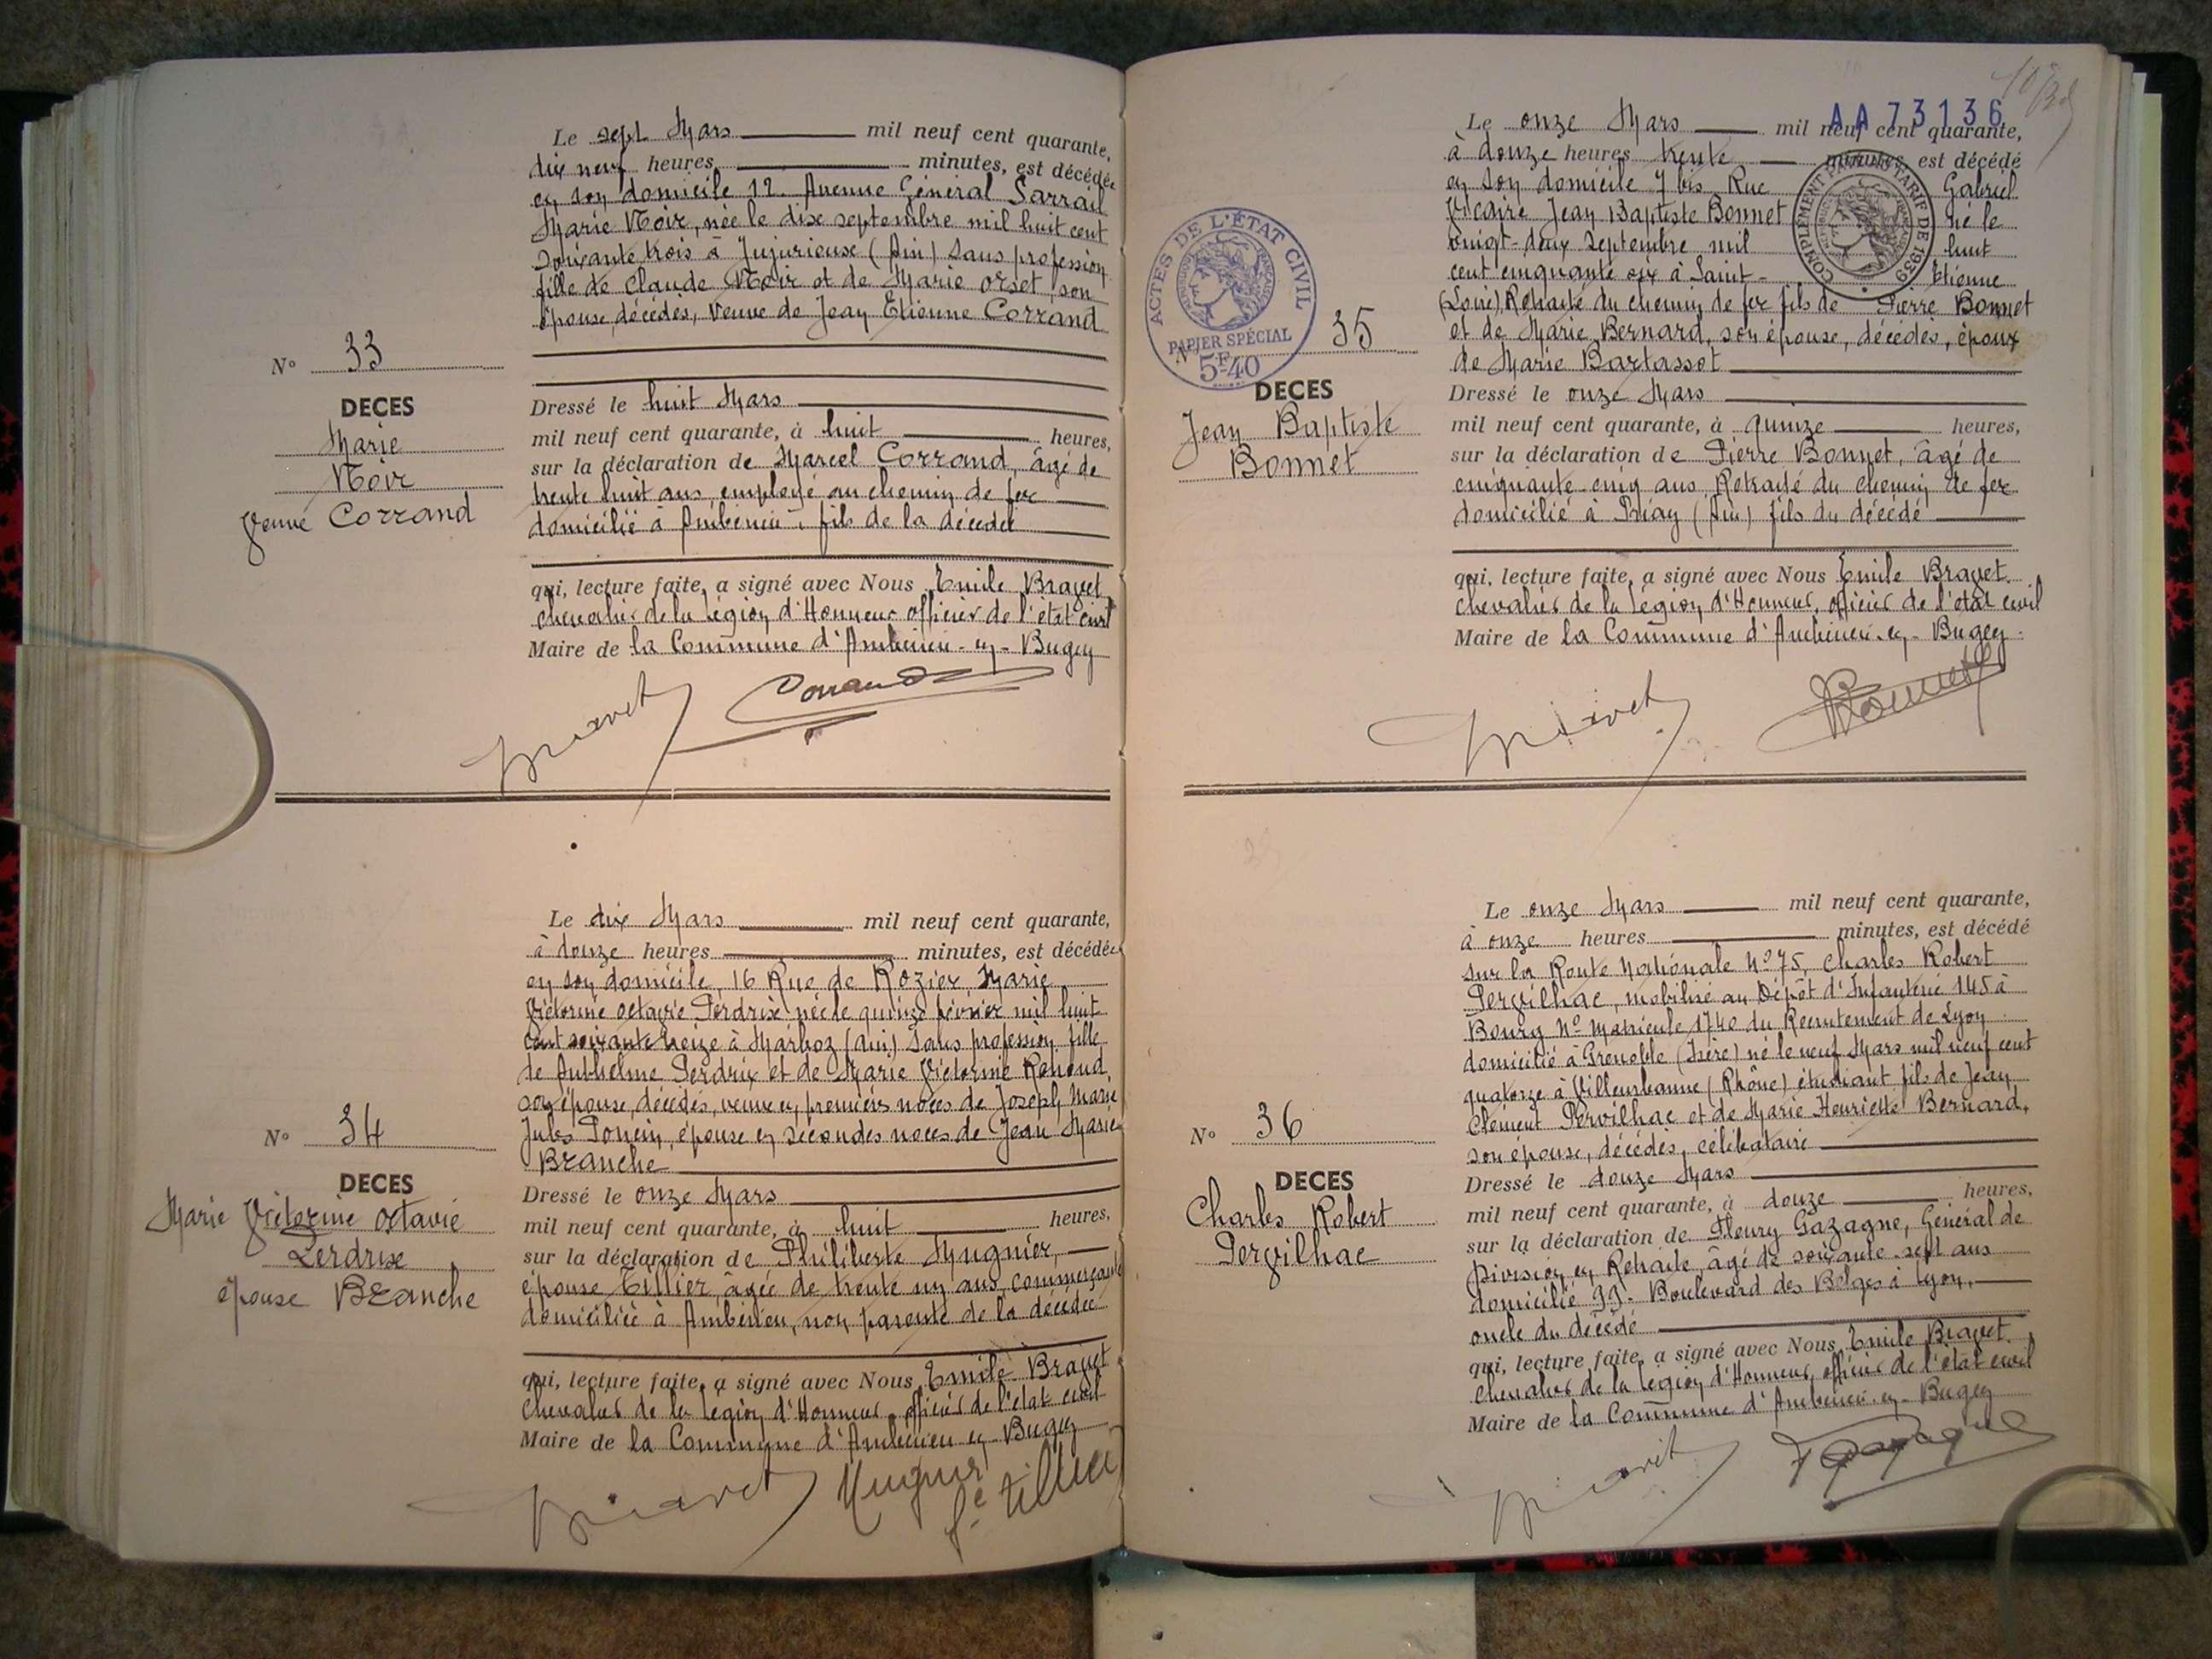 Le sept Mars mil neuf cent quarante,
dix neuf heures minutes, est décédée
en son domicile 12. Avenue Général Sarrail
Marie Noir, née le dix septembre mil huit cent
soixante trois à Jujurieux (Ain) sans profession
fille de Claude Noir et de Marie Orset, son
épouse, décédés, Veuve de Jean Etienne Corrand
N° 33
DECES
Marie
Noir
Veuve Corrand
Dressé le huit Mars
mil neuf cent quarante, à huit heures,
sur la déclaration de Marcel Corrand, âgé de
trente huit ans, employé au chemin de fer
domicilié à Ambérieu, fils de la décédée
qui, lecture faite, a signé avec Nous Emile Bravet
chevalier de la Légion d'Honneur officier de l'état civil
Maire de la Commune d'Ambérieu-en-Bugey
Bravet Corrand
Le dix Mars mil neuf cent quarante,
à douze heures minutes, est décédée
en son domicile, 16 Rue de Rozier, Marie
Victorine Octavie Perdrix née le quinze février mil huit
cent soixante treize à Marboz (Ain) sans profession fille
de Anthelme Perdrix et de Marie Victorine Renoud,
son épouse, décédés, veuve en premières noces de Joseph Marie
Jules Poncin, épouse en secondes noces de Jean Marie
Branche
N° 34
DECES
Marie Victorine Octavie
Perdrix
épouse Branche
Dressé le onze Mars
mil neuf cent quarante, à huit heures,
sur la déclaration de Philiberte Mugnier,
épouse Tillier, âgée de trente un ans, commerçante
domiciliée à Ambérieu, non parente de la décédée
qui, lecture faite, a signé avec Nous Emile Bravet
chevalier de la Légion d'Honneur officier de l'état civil
Maire de la Commune d'Ambérieu en Bugey
Bravet Mugnier
fe Tillier
AA 73136
Le onze Mars mil neuf cent quarante,
à douze heures trente minutes, est décédé
en son domicile 7 bis Rue Gabriel
Vicaire Jean Baptiste Bonnet né le
vingt-deux Septembre mil huit
cent cinquante six à Saint-Etienne
(Loire) Retraité du chemin de fer fils de Pierre Bonnet
et de Marie Bernard, son épouse, décédés, époux
de Marie Bartassot
COMPLÉMENT PAPIER TARIF DE 1939
ACTES DE L'ÉTAT CIVIL
PAPIER SPÉCIAL
5F40
N° 35
DECES
Jean Baptiste
Bonnet
Dressé le onze Mars
mil neuf cent quarante, à quinze heures,
sur la déclaration de Pierre Bonnet, âgé de
cinquante-cinq ans, Retraité du chemin de fer
domicilié à Priay (Ain) fils du décédé
qui, lecture faite, a signé avec Nous Emile Bravet
chevalier de la Légion d'Honneur, officier de l'état civil
Maire de la Commune d'Ambérieu-en-Bugey
Bravet Bonnet
Le onze Mars mil neuf cent quarante,
à onze heures minutes, est décédé
sur la Route Nationale N° 75, Charles Robert
Pervilhac, mobilisé au Dépôt d'Infanterie 145 à
Bourg N° Matricule 1740 du Recrutement de Lyon
domicilié à Grenoble (Isère) né le neuf Mars mil neuf cent
quatorze à Villeurbanne (Rhône) étudiant fils de Jean
Clément Pervilhac et de Marie Henriette Bernard,
son épouse, décédés, célibataire
N° 36
DECES
Charles Robert
Pervilhac
Dressé le douze Mars
mil neuf cent quarante, à douze heures,
sur la déclaration de Fleury Gazagne, Général de
Division en Retraite, âgé de soixante-sept ans
domicilié 99. Boulevard des Belges à Lyon,
oncle du décédé
qui, lecture faite, a signé avec Nous Emile Bravet
chevalier de la Légion d'Honneur, officier de l'état civil
Maire de la Commune d'Ambérieu-en-Bugey
Bravet Gazagne